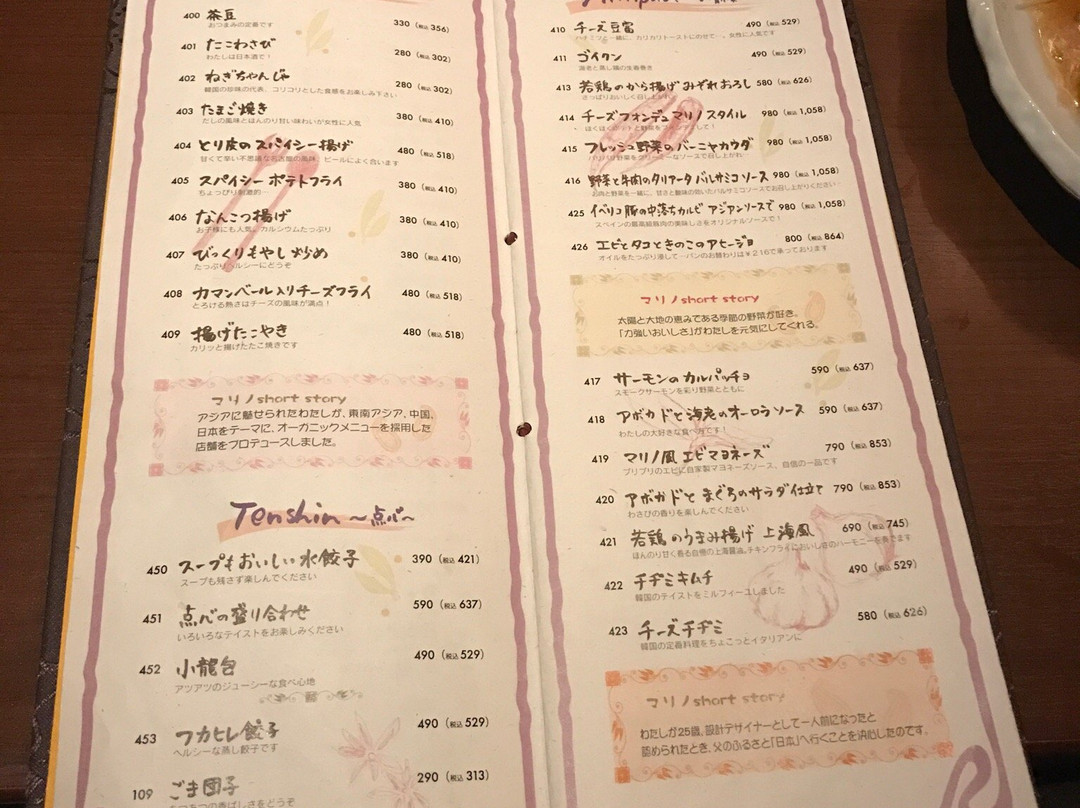 400 茶豆 330 (税込 356)
おつまみの定番です
401 たこわさび 280 (税込 302)
わたしは日本酒で！
402 ねぎちゃんじゃ 280 (税込 302)
韓国の珍味の代表、コリコリとした食感をお楽しみ下さい
403 たまご焼き 380 (税込 410)
だしの風味とほんのり甘い味わいが女性に人気
404 とり皮のスパイシー揚げ 480 (税込 518)
甘くて辛い不思議な名古屋の風味、ビールによく合います
405 スパイシーポテトフライ 380 (税込 410)
ちょっぴり刺激的…
406 なんこつ揚げ 380 (税込 410)
お子様にも人気。カルシウムたっぷり
407 びっくりもやし炒め 380 (税込 410)
たっぷりヘルシーにどうぞ
408 カマンベール入りチーズフライ 480 (税込 518)
とろける熱さはチーズの風味が満点！
409 揚げたこやき 480 (税込 518)
カリッと揚げたたこ焼きです
マリノshort story
アジアに魅せられたわたしが、東南アジア、中国、
日本をテーマに、オーガニックメニューを採用した
店舗をプロデュースしました。
Tenshin ～点心～
450 スープもおいしい水餃子 390 (税込 421)
スープも残さず楽しんでください
451 点心の盛り合わせ 590 (税込 637)
いろいろなテイストをお楽しみください
452 小龍包 490 (税込 529)
アツアツのジューシーな食べ心地
453 フカヒレ餃子 490 (税込 529)
ヘルシーな蒸し餃子です
109 ごま団子 290 (税込 313)
の香ばしさをどうぞ
410 チーズ豆富 490 (税込 529)
ハチミツと一緒に、カリカリトーストにのせて…。女性に人気です
411 ゴイクン 490 (税込 529)
海老と蒸し鶏の生春巻き
413 若鶏のから揚げ みぞれおろし 580 (税込 626)
さっぱりおいしく召し上がれ
414 チーズフォンデュ マリノスタイル 980 (税込 1,058)
ほくほくの と野菜をフォンデュして！
415 フレッシュ野菜のバーニャカウダ 980 (税込 1,058)
パリパリ野菜をクリーミーなソースで召し上がれ
416 野菜と牛肉のタリアータ バルサミコソース 980 (税込 1,058)
お肉と野菜を一緒に、甘さと酸味の効いたバルサミコソースでお召し上がりください
425 イベリコ豚の中落ちカルビ アジアンソースで 980 (税込 1,058)
スペインの最高級豚肉の美味しさをオリジナルソースで！
426 エビとタコときのこのアヒージョ 800 (税込 864)
オイルをたっぷり浸して…パンのお替わりは￥216で承っております
マリノshort story
太陽と大地の恵みである季節の野菜が好き。
「力強いおいしさ」がわたしを元気にしてくれる。
417 サーモンのカルパッチョ 590 (税込 637)
スモークサーモンを彩り野菜とともに
418 アボカドと海老のオーロラソース 590 (税込 637)
わたしの大好きな食べ方です！
419 マリノ風エビマヨネーズ 790 (税込 853)
プリプリのエビに自家製マヨネーズソース、自信の一品です
420 アボカドとまぐろのサラダ仕立て 790 (税込 853)
わさびの香りを楽しんでください
421 若鶏のうまみ揚げ 上海風 690 (税込 745)
ほんのり甘く香る自慢の上海醤油。チキンフライにおいしさのハーモニーを奏でます
422 チヂミキムチ 490 (税込 529)
韓国のテイストをミルフィーユしました
423 チーズチヂミ 580 (税込 626)
韓国の定番料理をちょこっとイタリアンに
マリノshort story
わたしが25歳。設計デザイナーとして一人前になったと
認められたとき、父のふるさと「日本」へ行くことを決心したのです。